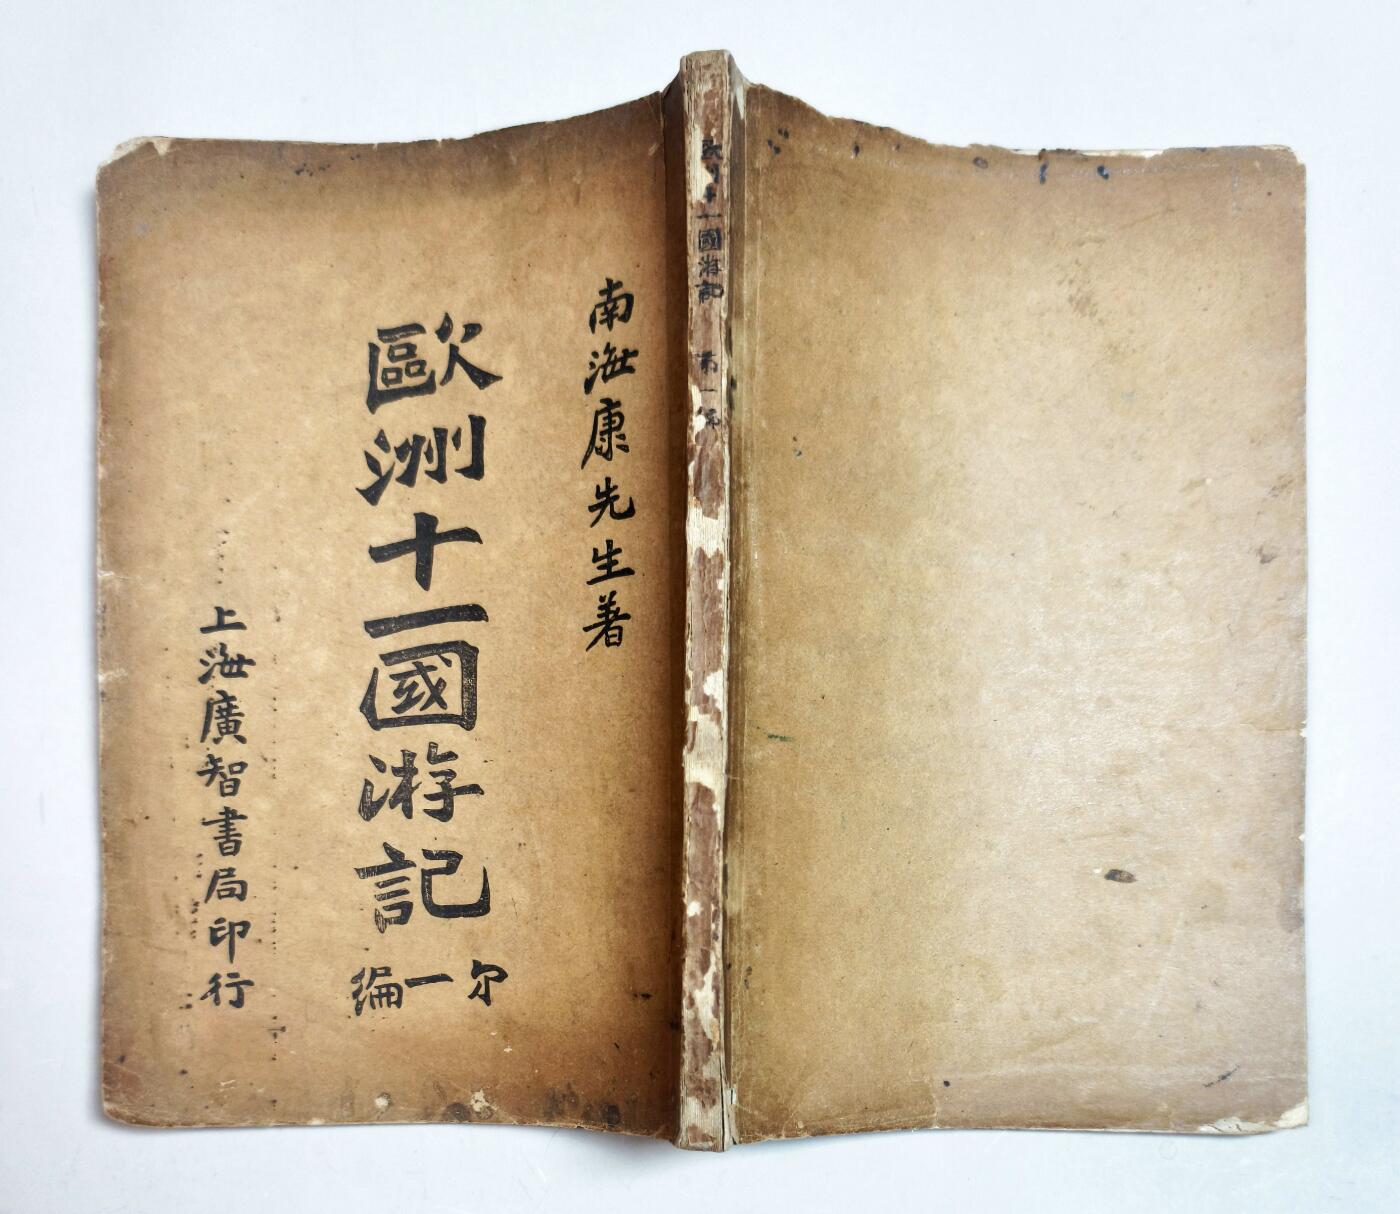 南海康先生著
歐洲十一國游記
尔一編
上海廣智書局印行
歐洲十一國游記 第一編